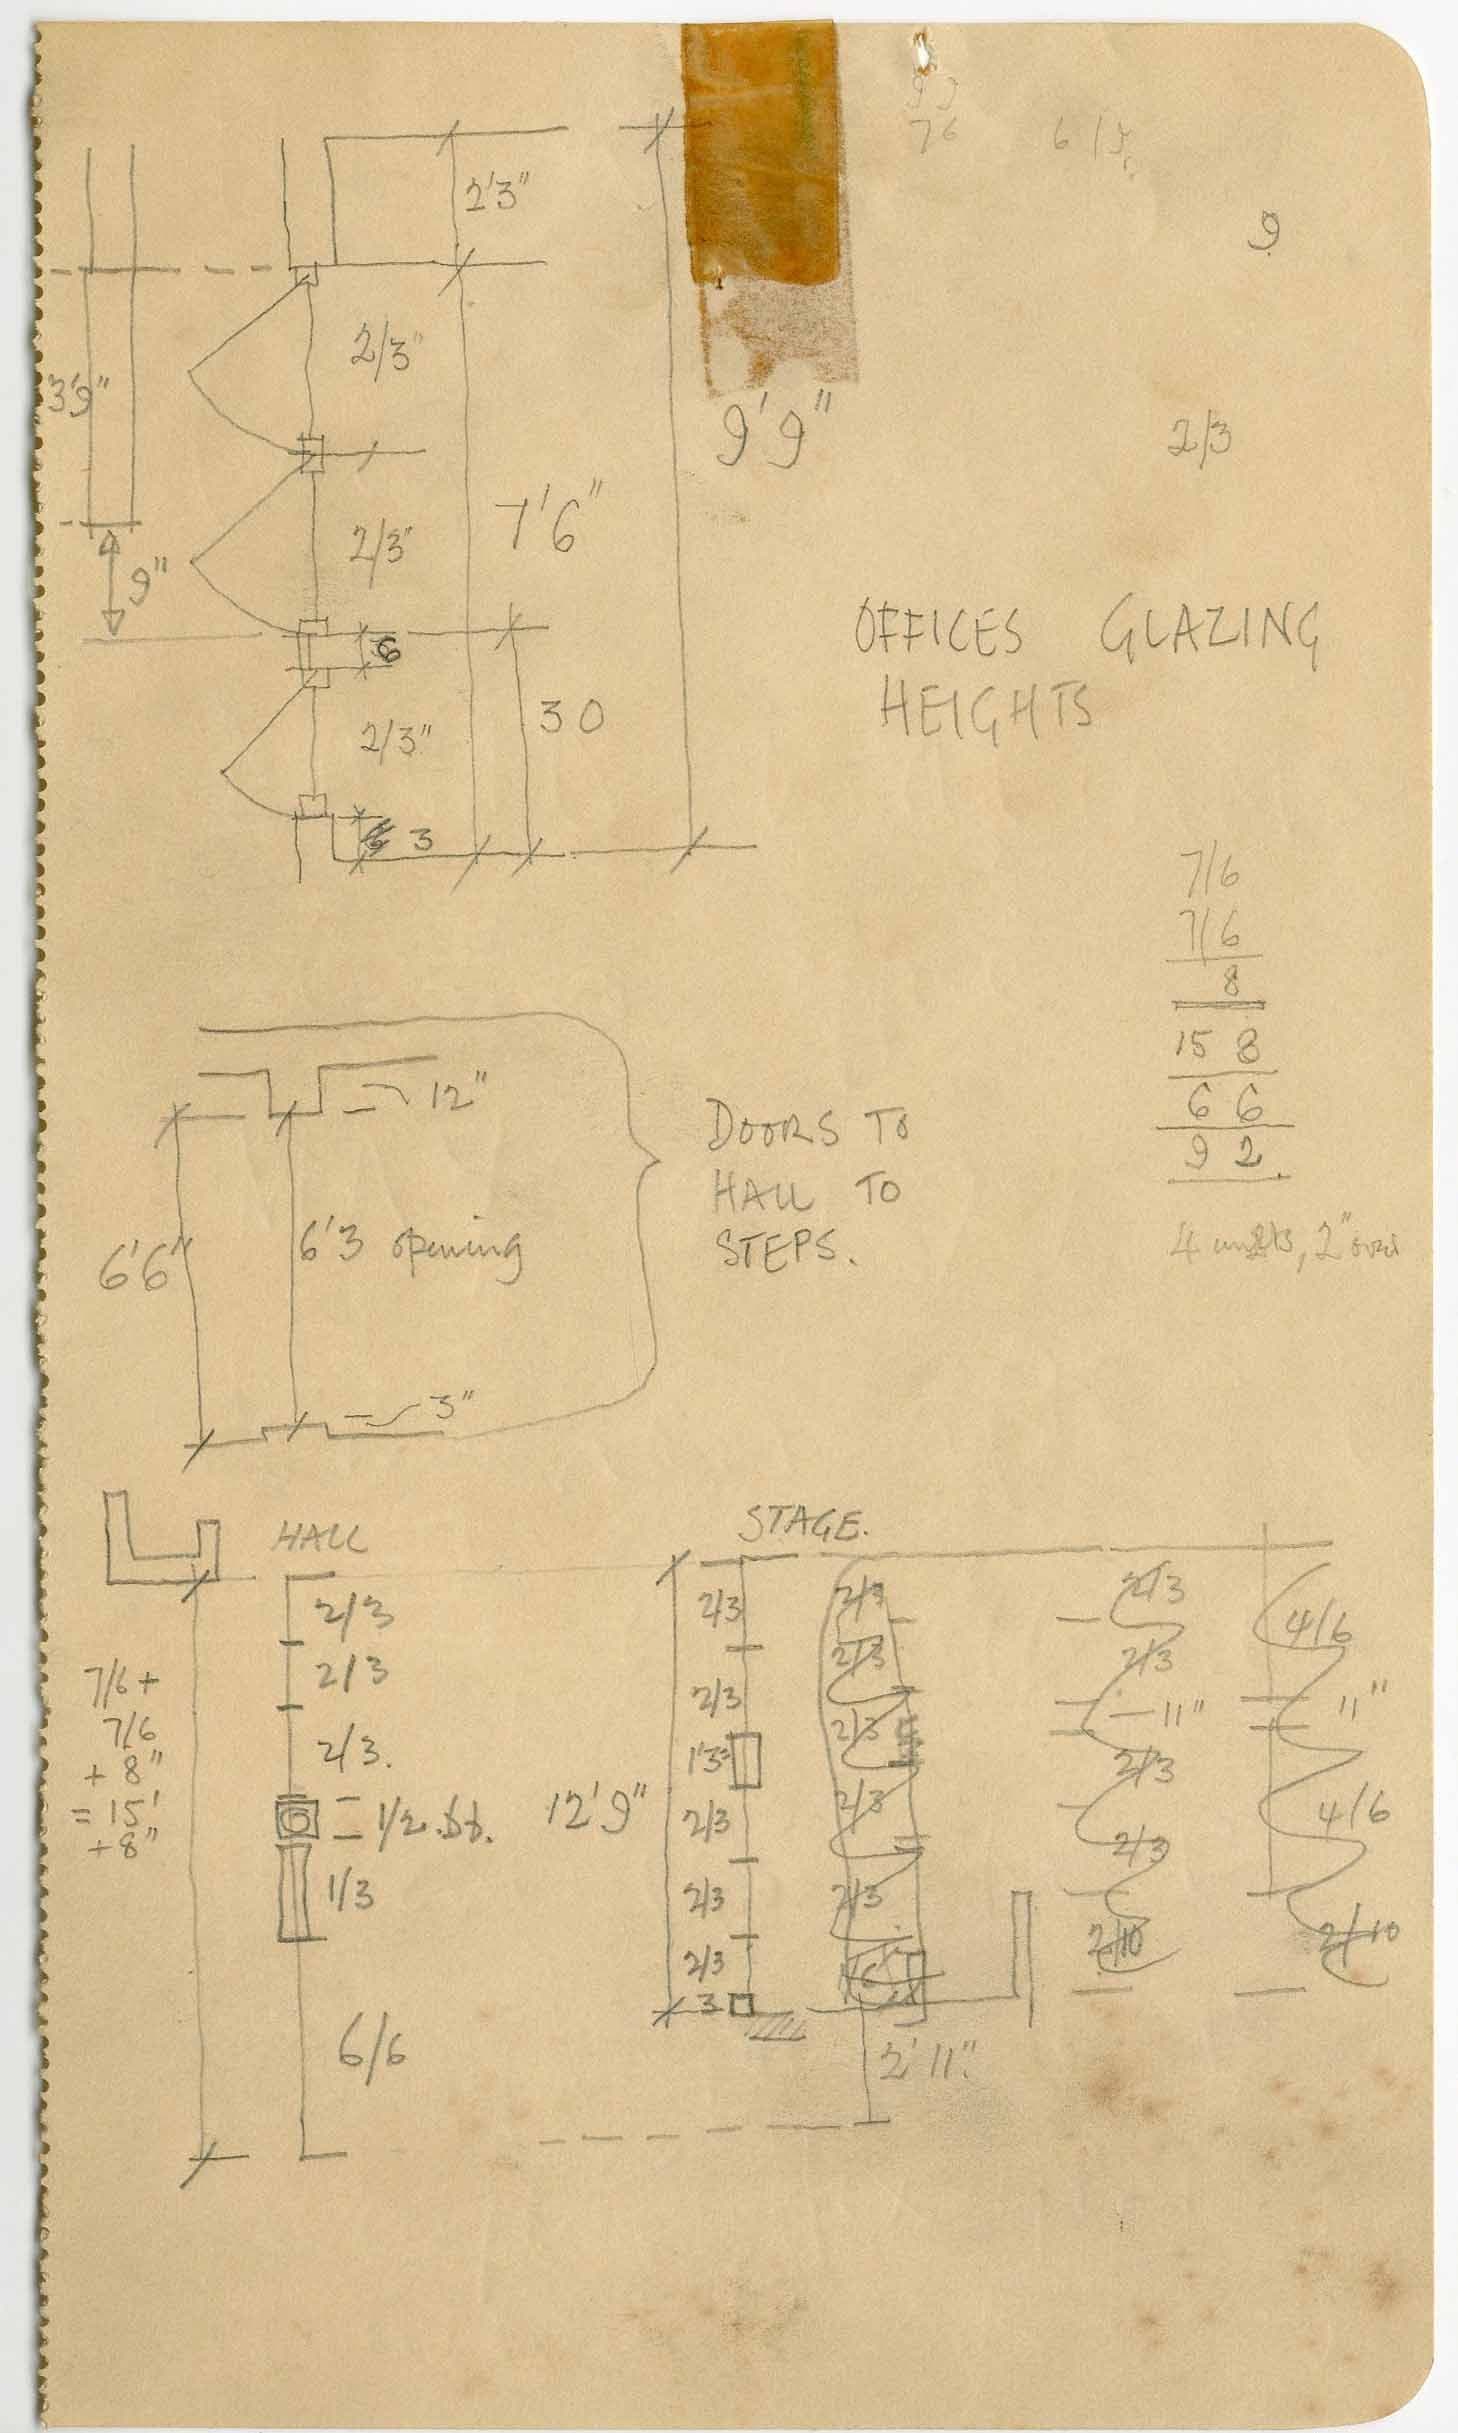 9 9
76
2'3"
9
2/3"
3'9"
9'9"
2/3
7'6"
2/3"
9"
OFFICES GLAZING
HEIGHTS
6
30
2/3"
3
7/6
7/6
8
15 8
6 6
9 2
4 units, 2" over
12"
DOORS TO
HALL TO
STEPS.
6'6"
6'3 opening
3"
HALL
2/3
2/3
2/3.
1/3
6/6
7/6 +
7/6
+ 8"
= 15'
+ 8"
STAGE.
12'9"
2/3
2/3
1'3"
2/3
2/3
2/3
3
2/3
2/3
2/3
2/3
2/3
2'11"
2/3
2/3
11"
2/3
2/3
2/10
4/6
11"
4/6
2/10